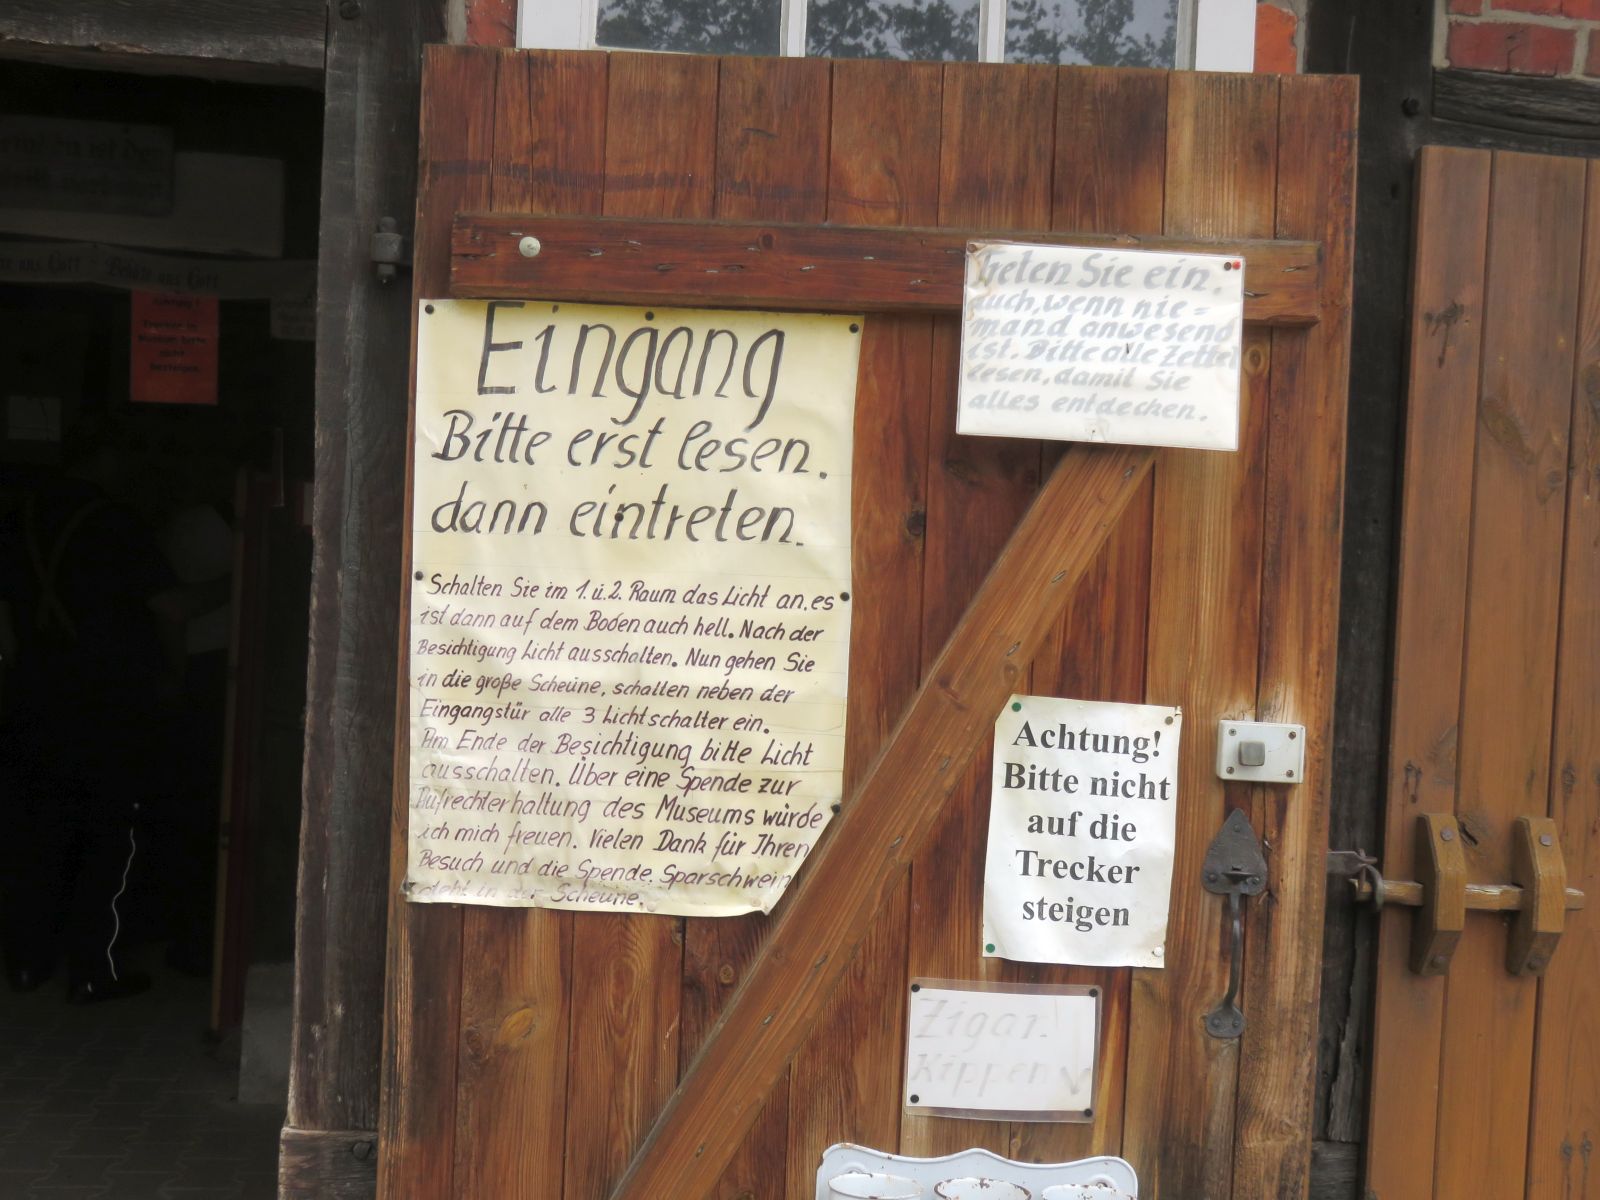 Eingang
Bitte erst lesen.
dann eintreten.
Schalten Sie im 1. u. 2. Raum das Licht an. es
ist dann auf dem Boden auch hell. Nach der
Besichtigung Licht ausschalten. Nun gehen Sie
in die große Scheune, schalten neben der
Eingangstür alle 3 Lichtschalter ein.
Am Ende der Besichtigung bitte Licht
ausschalten. Über eine Spende zur
Aufrechterhaltung des Museums würde
ich mich freuen. Vielen Dank für Ihren
Besuch und die Spende. Sparschwein
steht in der Scheune.
Treten Sie ein.
auch, wenn nie=
mand anwesend
ist. Bitte alle Zettel
lesen, damit Sie
alles entdecken.
Achtung!
Bitte nicht
auf die
Trecker
steigen
Zigar.
Kippen
ist der
uns Gott - Behüte uns Gott
Achtung!
Trecker im
Museum bitte
nicht
besteigen.